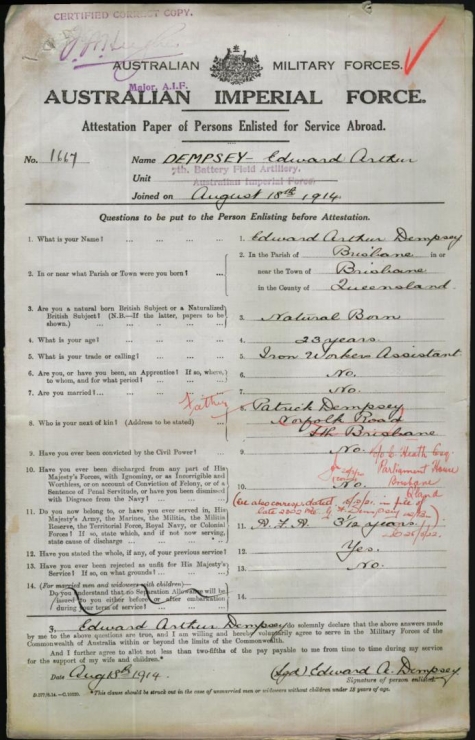 CERTIFIED CORRECT COPY.
Major, A.I.F.
AUSTRALIAN MILITARY FORCES.
AUSTRALIAN IMPERIAL FORCE.
Attestation Paper of Persons Enlisted for Service Abroad.
No. 1667 Name DEMPSEY - Edward Arthur
Unit 7th. Battery Field Artillery, Australian Imperial Force.
Joined on August 18th 1914.
Questions to be put to the Person Enlisting before Attestation.
1. What is your Name? ... ... ... ... 1. Edward Arthur Dempsey
2. In or near what Parish or Town were you born? ... 2. In the Parish of Brisbane in or
near the Town of Brisbane
in the County of Queensland.
3. Are you a natural born British Subject or a Naturalized
British Subject? (N.B.—If the latter, papers to be
shown.) ... ... ... ... 3. Natural Born
4. What is your age? ... ... ... ... 4. 23 years.
5. What is your trade or calling? ... ... ... 5. Iron Workers Assistant
6. Are you, or have you been, an Apprentice? If so, where,
to whom, and for what period? ... ... ... 6. No.
7. Are you married? ... ... ... ... 7. No.
Father
8. Who is your next of kin? (Address to be stated) ... 8. Patrick Dempsey
Norfolk Road
Sth Brisbane
9. Have you ever been convicted by the Civil Power? ... 9. No.
c/o E Heath Esq
Parliament House
Brisbane
10. Have you ever been discharged from any part of His
Majesty's Forces, with Ignominy, or as Incorrigible and
Worthless, or on account of Conviction of Felony, or of a
Sentence of Penal Servitude, or have you been dismissed
with Disgrace from the Navy? ... ... ... 10. No.
11. Do you now belong to, or have you ever served, in, His
Majesty's Army, the Marines, the Militia, the Militia
Reserve, the Territorial Force, Royal Navy, or Colonial
Forces? If so, state which, and if not now serving,
state cause of discharge ... ... ... 11. A.F.A. 3½ years
12. Have you stated the whole, if any, of your previous service? 12. Yes.
13. Have you ever been rejected as unfit for His Majesty's
Service? If so, on what grounds? ... ... ... 13. No.
14. (For married men and widowers with children—
Do you understand that no Separation Allowance will be
issued to you either before or after embarkation
during your term of service? ... ... ... 14.
I, Edward Arthur Dempsey do solemnly declare that the above answers made
by me to the above questions are true, and I am willing and hereby voluntarily agree to serve in the Military Forces of the
Commonwealth of Australia within or beyond the limits of the Commonwealth.
And I further agree to allot not less than two-fifths of the pay payable to me from time to time during my service
for the support of my wife and children.*
Date Aug 18th 1914. (Sgd) Edward A. Dempsey
Signature of person enlisted.
*This clause should be struck out in the case of unmarried men or widowers without children under 18 years of age.